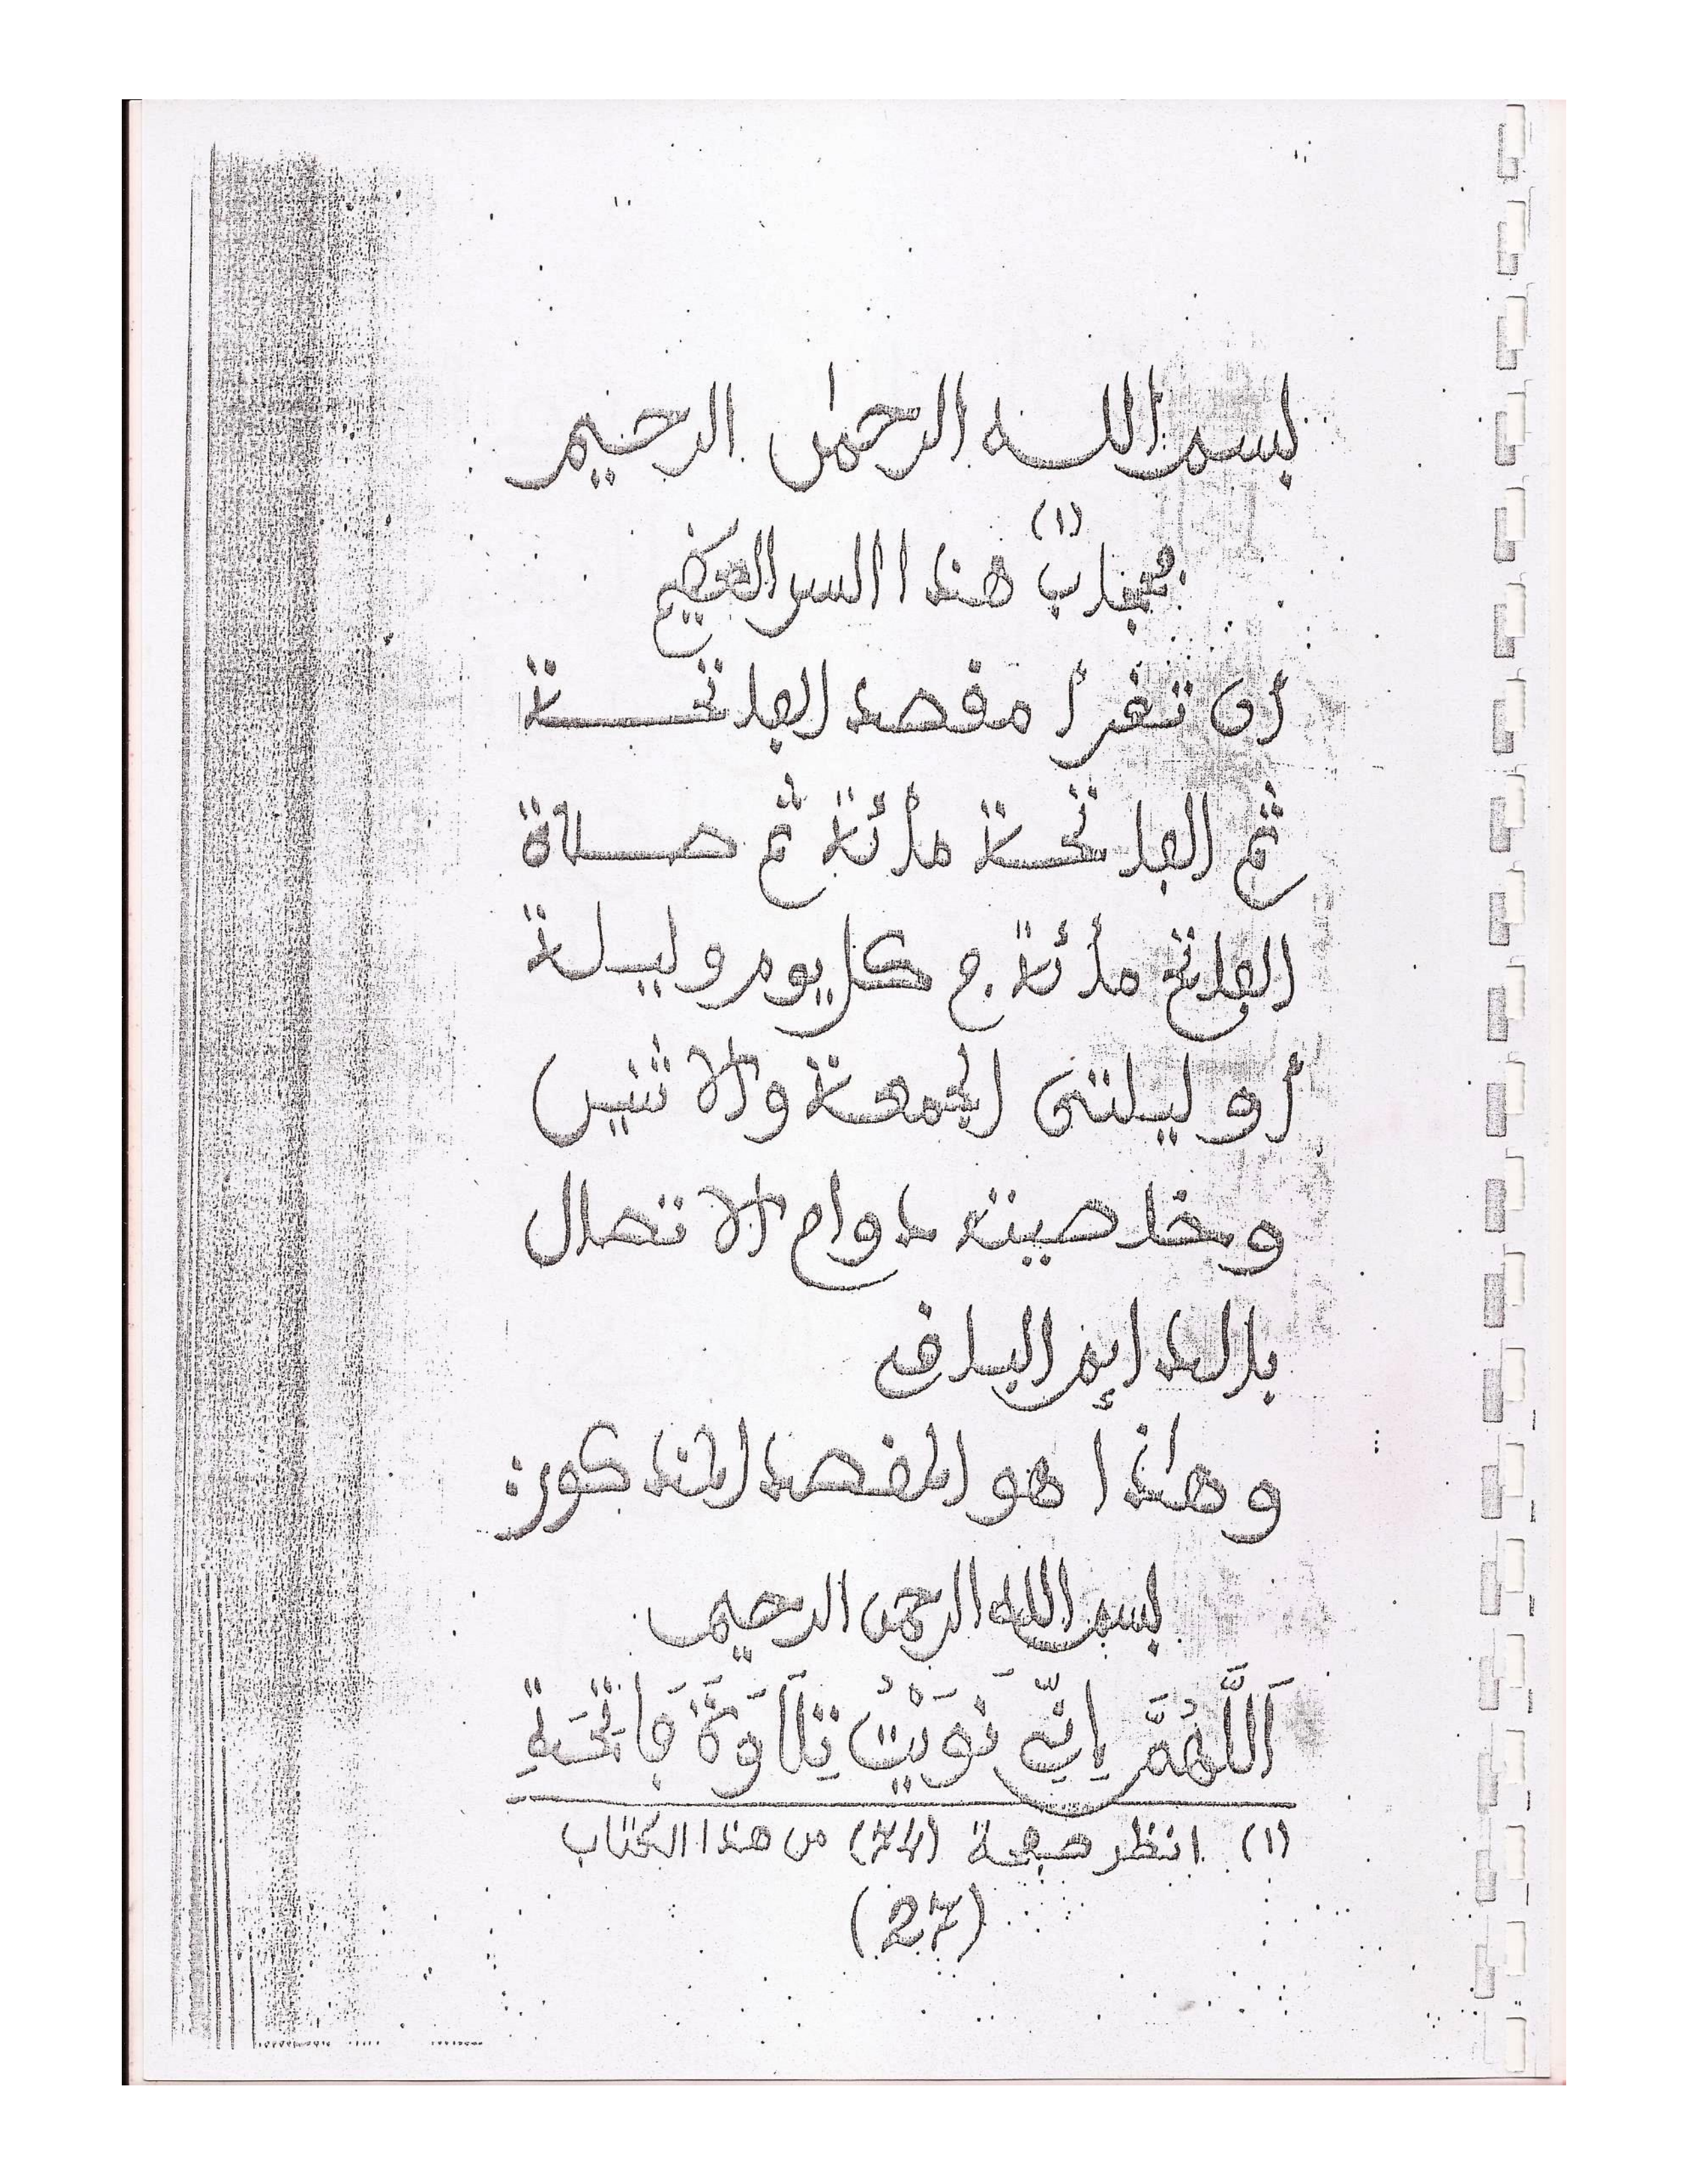 بسم اللـه الرحمٰن الرحيم
(١)
هذا السر العظيم
أن تقرأ مقصد الفاتحـــة
ثم الفاتحـة مأئة ثم صـلاة
الفاتح مأئة في كل يوم وليـلة
أو ليلتي الجمعة والاثنين
وخاصيته دوام الاتصال
بالدائم الباقي
وهاذا هو المقصد المذكور:
بسم الله الرحمن الرحيم
اَللَّهُمَّ إِنِّي نَوَيْتُ تِلَاوَةَ فَاتِحَةِ
(١) انظر صفحة (74) من هذا الكتاب
(27)